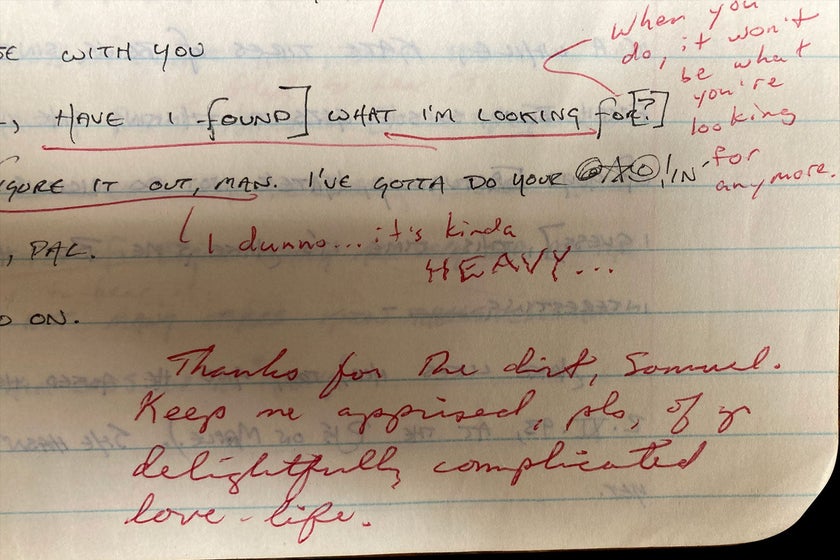 When you
do, it won't
be what
you're
looking
for
anymore.
SE WITH YOU
, HAVE I FOUND] WHAT I'M LOOKING FOR[?]
IGURE IT OUT, MAN. I'VE GOTTA DO YOUR !IN'
, PAL.
I dunno...it's kinda
HEAVY...
D ON.
Thanks for the dirt, Samuel.
Keep me apprised, pls, of yr
delightfully complicated
love-life.